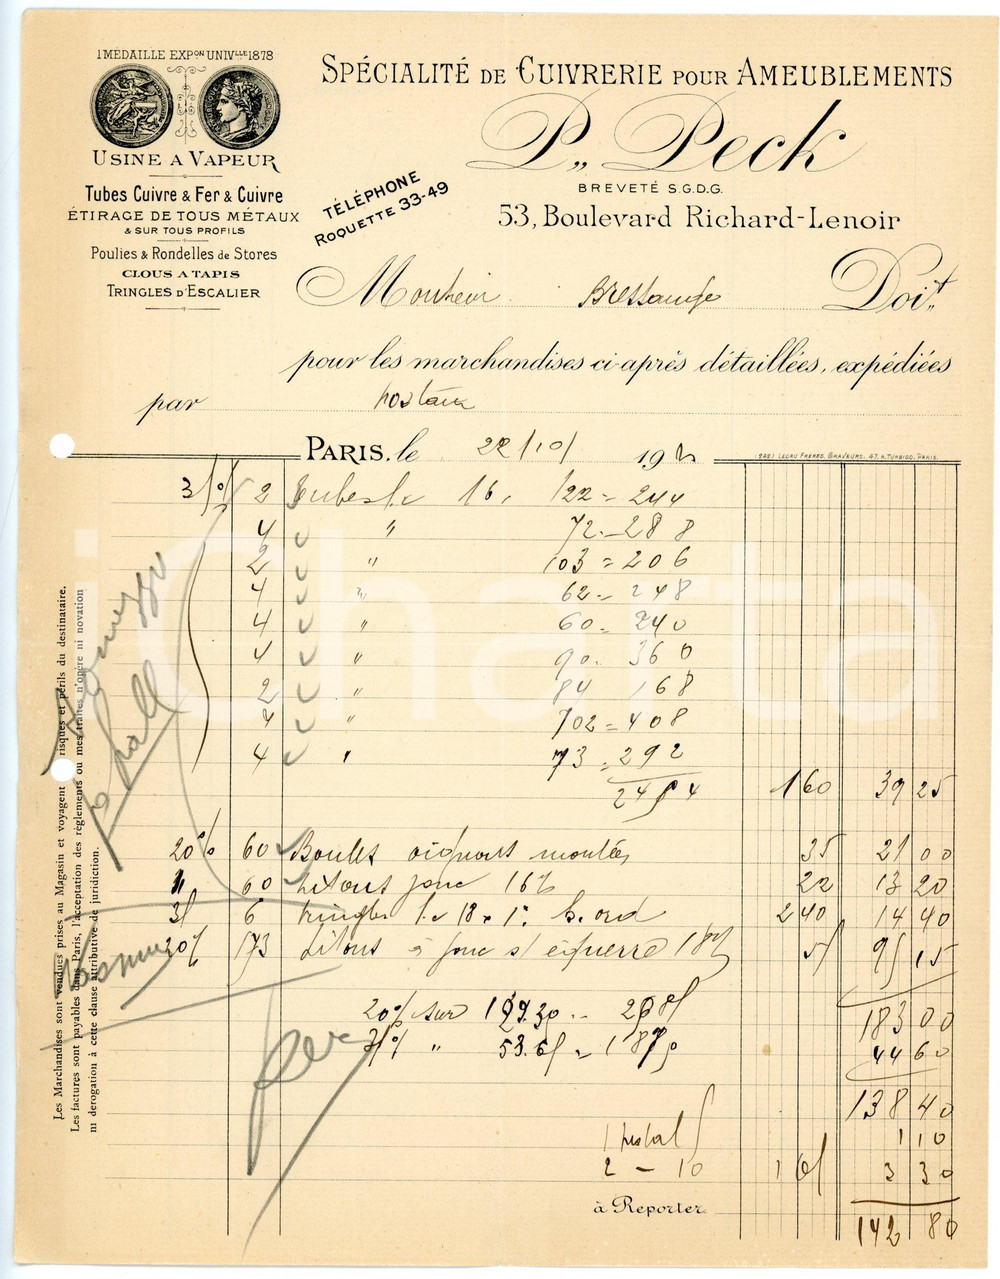 1 MÉDAILLE EXPon UNIVlle 1878
USINE A VAPEUR
Tubes Cuivre & Fer & Cuivre
ÉTIRAGE DE TOUS MÉTAUX
& SUR TOUS PROFILS
Poulies & Rondelles de Stores
CLOUS A TAPIS
TRINGLES D'ESCALIER
SPÉCIALITÉ DE CUIVRERIE POUR AMEUBLEMENTS
P,, Peck
BREVETÉ S.G.D.G.
53, Boulevard Richard-Lenoir
TÉLÉPHONE
ROQUETTE 33-49
Monsieur Doit
pour les marchandises ci-après détaillées, expédiées
par postaux
PARIS, le 22/10/ 192
(248) LEDRU FRÈRES, GRAVEURS, 47, R. TURBIGO, PARIS.
2 Tubes 16. 122 = 244
4 " 72 - 288
2 " 103 = 206
4 " 62 - 248
4 " 60 - 240
4 " 90 - 360
2 " 84 168
4 " 102 = 408
4 " 73 = 292
2454 160 39 25
20% 60 Boules oignons moulées 35 21 00
" 60 pitons jonc 22 13 20
6 tringles 2 40 14 40
173 pitons à jonc s/ équerre 95 15
183 00
20% sur
" 53.65
44 60
138 40
1 postal 1 10
2 - 10 1 65 3 30
à Reporter
142 80
Les Marchandises sont vendues prises au Magasin et voyagent risques et périls du destinataire.
Les factures sont payables dans Paris, l'acceptation des règlements ou mes traites n'opère ni novation
ni dérogation à cette clause attributive de juridiction.
iCharta